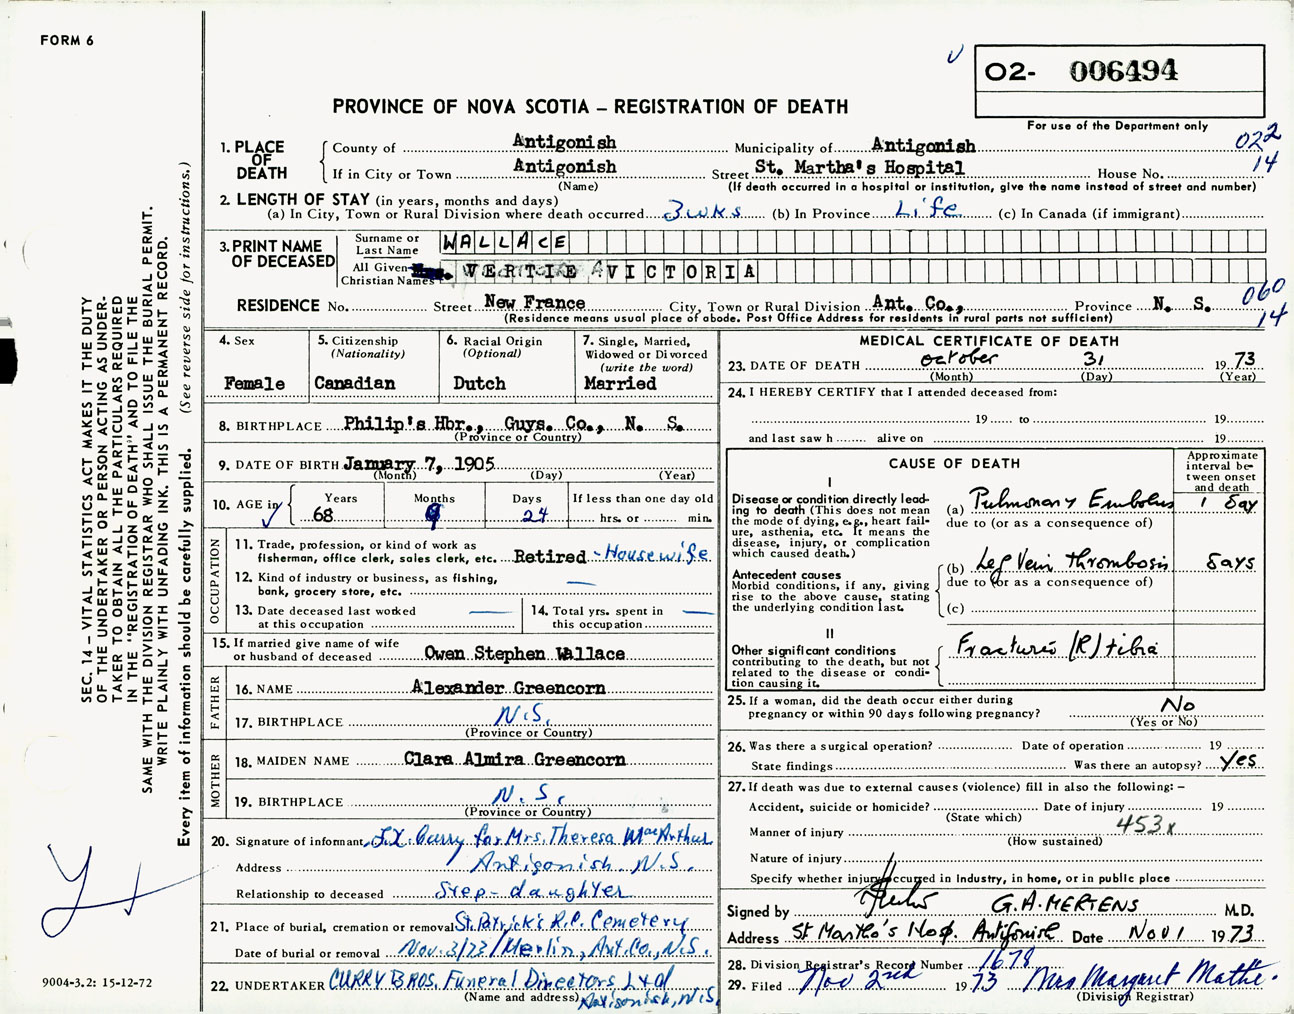 FORM 6
02- 006494
PROVINCE OF NOVA SCOTIA – REGISTRATION OF DEATH
For use of the Department only
022
14
1. PLACE OF DEATH
County of Antigonish Municipality of Antigonish
If in City or Town Antigonish Street St. Martha's Hospital House No.
(Name) (If death occurred in a hospital or institution, give the name instead of street and number)
2. LENGTH OF STAY (in years, months and days)
(a) In City, Town or Rural Division where death occurred 3 wks (b) In Province Life (c) In Canada (if immigrant)
3. PRINT NAME OF DECEASED
Surname or Last Name WALLACE
All Given Christian Names VERTIE VICTORIA
RESIDENCE No. Street New France City, Town or Rural Division Ant. Co., Province N. S.
060
14
(Residence means usual place of abode. Post Office Address for residents in rural parts not sufficient)
4. Sex
Female
5. Citizenship
(Nationality)
Canadian
6. Racial Origin
(Optional)
Dutch
7. Single, Married,
Widowed or Divorced
(write the word)
Married
8. BIRTHPLACE Philip's Hbr., Guys. Co., N. S.
(Province or Country)
9. DATE OF BIRTH January 7, 1905
(Month) (Day) (Year)
10. AGE in
Years Months Days If less than one day old
68 9 24 hrs. or min.
OCCUPATION
11. Trade, profession, or kind of work as
fisherman, office clerk, sales clerk, etc. Retired - Housewife
12. Kind of industry or business, as fishing,
bank, grocery store, etc. —
13. Date deceased last worked
at this occupation —
14. Total yrs. spent in
this occupation —
15. If married give name of wife
or husband of deceased Owen Stephen Wallace
FATHER
16. NAME Alexander Greencorn
17. BIRTHPLACE N.S.
(Province or Country)
MOTHER
18. MAIDEN NAME Clara Almira Greencorn
19. BIRTHPLACE N. S.
(Province or Country)
20. Signature of informant Curry for Mrs. Theresa MacArthur
Address Antigonish, N.S.
Relationship to deceased Step-daughter
21. Place of burial, cremation or removal St. Patrick's R.C. Cemetery
Date of burial or removal Nov. 3/73/Merlin, Ant. Co., N.S.
22. UNDERTAKER CURRY BROS. Funeral Directors Ltd
(Name and address) Antigonish, N.S.
MEDICAL CERTIFICATE OF DEATH
23. DATE OF DEATH October 31 1973
(Month) (Day) (Year)
24. I HEREBY CERTIFY that I attended deceased from:
19 to 19
and last saw h alive on 19
CAUSE OF DEATH
Approximate
interval be-
tween onset
and death
I
Disease or condition directly lead-
ing to death (This does not mean
the mode of dying, e.g., heart fail-
ure, asthenia, etc. It means the
disease, injury, or complication
which caused death.)
(a) Pulmonary Embolus 1 day
due to (or as a consequence of)
Antecedent causes
Morbid conditions, if any, giving
rise to the above cause, stating
the underlying condition last.
(b) Leg Vein thrombosis days
due to (or as a consequence of)
(c)
II
Other significant conditions
contributing to the death, but not
related to the disease or condi-
tion causing it.
Fractured (R) tibia
25. If a woman, did the death occur either during
pregnancy or within 90 days following pregnancy? No
(Yes or No)
26. Was there a surgical operation? Date of operation 19
State findings Was there an autopsy? Yes
27. If death was due to external causes (violence) fill in also the following: –
Accident, suicide or homicide? Date of injury 19
(State which)
Manner of injury 453x
(How sustained)
Nature of injury
Specify whether injury occurred in industry, in home, or in public place
Signed by G. A. MERTENS M.D.
Address St Martha's Hosp. Antigonish Date Nov 1 1973
28. Division Registrar's Record Number 1678
29. Filed Nov 2nd 1973 Mrs Margaret Mathe
(Division Registrar)
SEC. 14 – VITAL STATISTICS ACT MAKES IT THE DUTY
OF THE UNDERTAKER OR PERSON ACTING AS UNDER-
TAKER TO OBTAIN ALL THE PARTICULARS REQUIRED
IN THE "REGISTRATION OF DEATH" AND TO FILE THE
SAME WITH THE DIVISION REGISTRAR WHO SHALL ISSUE THE BURIAL PERMIT.
WRITE PLAINLY WITH UNFADING INK. THIS IS A PERMANENT RECORD.
Every item of information should be carefully supplied. (See reverse side for instructions.)
9004-3.2: 15-12-72